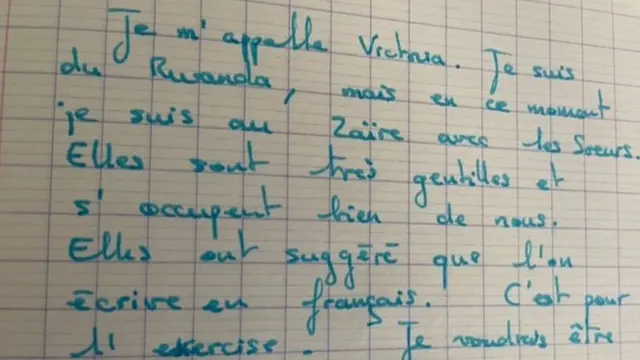 Je m'appelle Victoria. Je suis
du Rwanda, mais en ce moment
je suis au Zaïre avec les Soeurs.
Elles sont très gentilles et
s'occupent bien de nous.
Elles ont suggéré que l'on
écrive en français. C'est pour
l'exercise. Je voudrais être